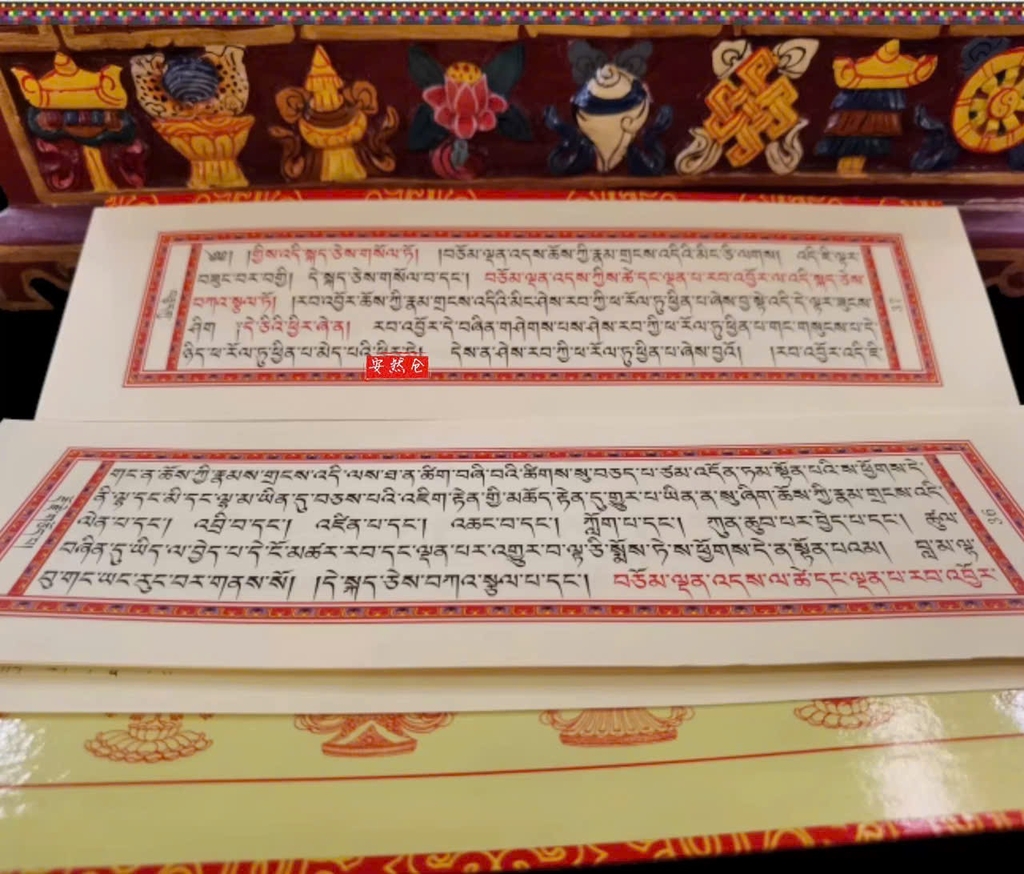 ༄༅། །གྱིས་འདི་སྐད་ཅེས་གསོལ་ཏོ། །བཅོམ་ལྡན་འདས་ཆོས་ཀྱི་རྣམ་གྲངས་འདིའི་མིང་ཅི་ལགས། འདི་ཇི་ལྟར་
བཟུང་བར་བགྱི། དེ་སྐད་ཅེས་གསོལ་བ་དང་། བཅོམ་ལྡན་འདས་ཀྱིས་ཚེ་དང་ལྡན་པ་རབ་འབྱོར་ལ་འདི་སྐད་ཅེས་
བཀའ་སྩལ་ཏོ། །རབ་འབྱོར་ཆོས་ཀྱི་རྣམ་གྲངས་འདིའི་མིང་ཤེས་རབ་ཀྱི་ཕ་རོལ་ཏུ་ཕྱིན་པ་ཞེས་བྱ་སྟེ་འདི་དེ་ལྟར་ཟུངས་
ཤིག །དེ་ཅིའི་ཕྱིར་ཞེ་ན། རབ་འབྱོར་དེ་བཞིན་གཤེགས་པས་ཤེས་རབ་ཀྱི་ཕ་རོལ་ཏུ་ཕྱིན་པ་གང་གསུངས་པ་དེ་
ཉིད་ཕ་རོལ་ཏུ་ཕྱིན་པ་མེད་པའི་ཕྱིར་ཏེ། དེས་ན་ཤེས་རབ་ཀྱི་ཕ་རོལ་ཏུ་ཕྱིན་པ་ཞེས་བྱའོ། །རབ་འབྱོར་འདི་ཇི་
37
安然仓
གང་ན་ཆོས་ཀྱི་རྣམས་གྲངས་འདི་ལས་ཐ་ན་ཚིག་བཞི་བའི་ཚིགས་སུ་བཅད་པ་ཙམ་འདོན་ཏམ་སྟོན་པའི་ས་ཕྱོགས་དེ་
ནི་ལྷ་དང་མི་དང་ལྷ་མ་ཡིན་དུ་བཅས་པའི་འཇིག་རྟེན་གྱི་མཆོད་རྟེན་དུ་གྱུར་པ་ཡིན་ན་སུ་ཞིག་ཆོས་ཀྱི་རྣམ་གྲངས་འདི་
ལེན་པ་དང་། འབྲི་བ་དང་། འཛིན་པ་དང་། འཆང་བ་དང་། ཀློག་པ་དང་། ཀུན་ཆུབ་པར་བྱེད་པ་དང་། ཚུལ་
བཞིན་དུ་ཡིད་ལ་བྱེད་པ་དེ་ངོ་མཚར་རབ་དང་ལྡན་པར་འགྱུར་བ་ལྟ་ཅི་སྨོས་ཏེ་ས་ཕྱོགས་དེ་ན་སྟོན་པའམ། བླ་མ་ལྟ་
བུ་གང་ཡང་རུང་བར་གནས་སོ། །དེ་སྐད་ཅེས་བཀའ་སྩལ་པ་དང་། བཅོམ་ལྡན་འདས་ལ་ཚེ་དང་ལྡན་པ་རབ་འབྱོར་
36